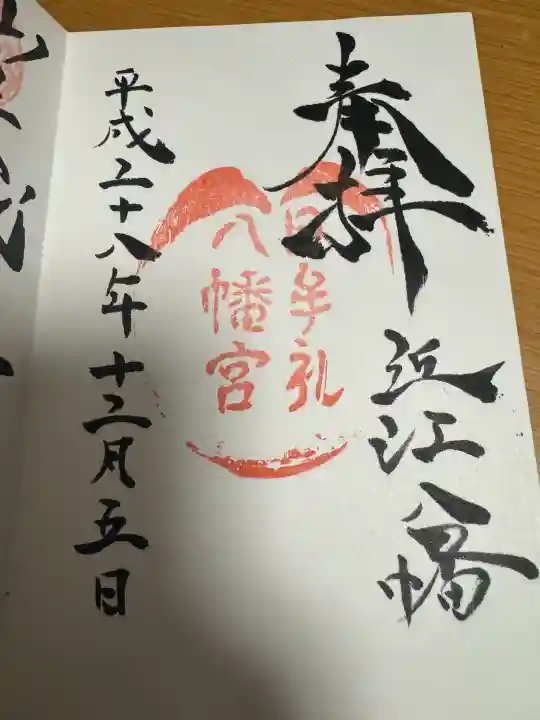 奉拝
近江八幡
日牟礼
八幡宮
平成二十八年十二月五日